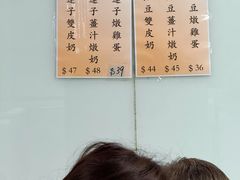 子燉雞蛋
$39
子薑汁燉奶
$48
子雙皮奶
$47
豆燉雞蛋
$36
豆薑汁燉奶
$45
豆雙皮奶
$44